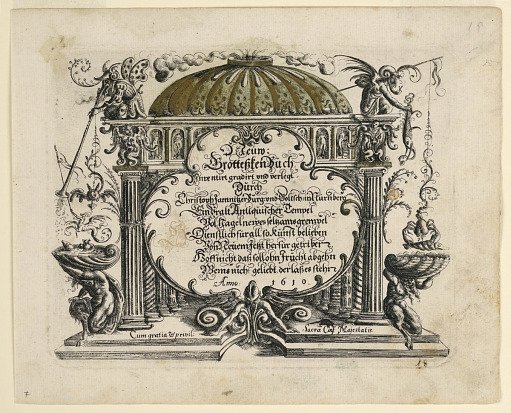 Neuw:
Grotteßken Buch
Inventirt gradirt und verlegt
Durch
Christoph Jamnitzer Burg: und Goltschmit in Nürnberg
Ein Uralt Antiquischer Tempel
Vol Nagelneues seltzams grempel
Dienstlich für all, so Kunst belieben
Neuem ietzt herfür getriben
Hoff nicht daß soll ohn frücht abgehn
Wems nicht geliebt der laß es stehn
Anno 1610.
Cum gratia & privil:
Sacræ Cæs Majestatis
18